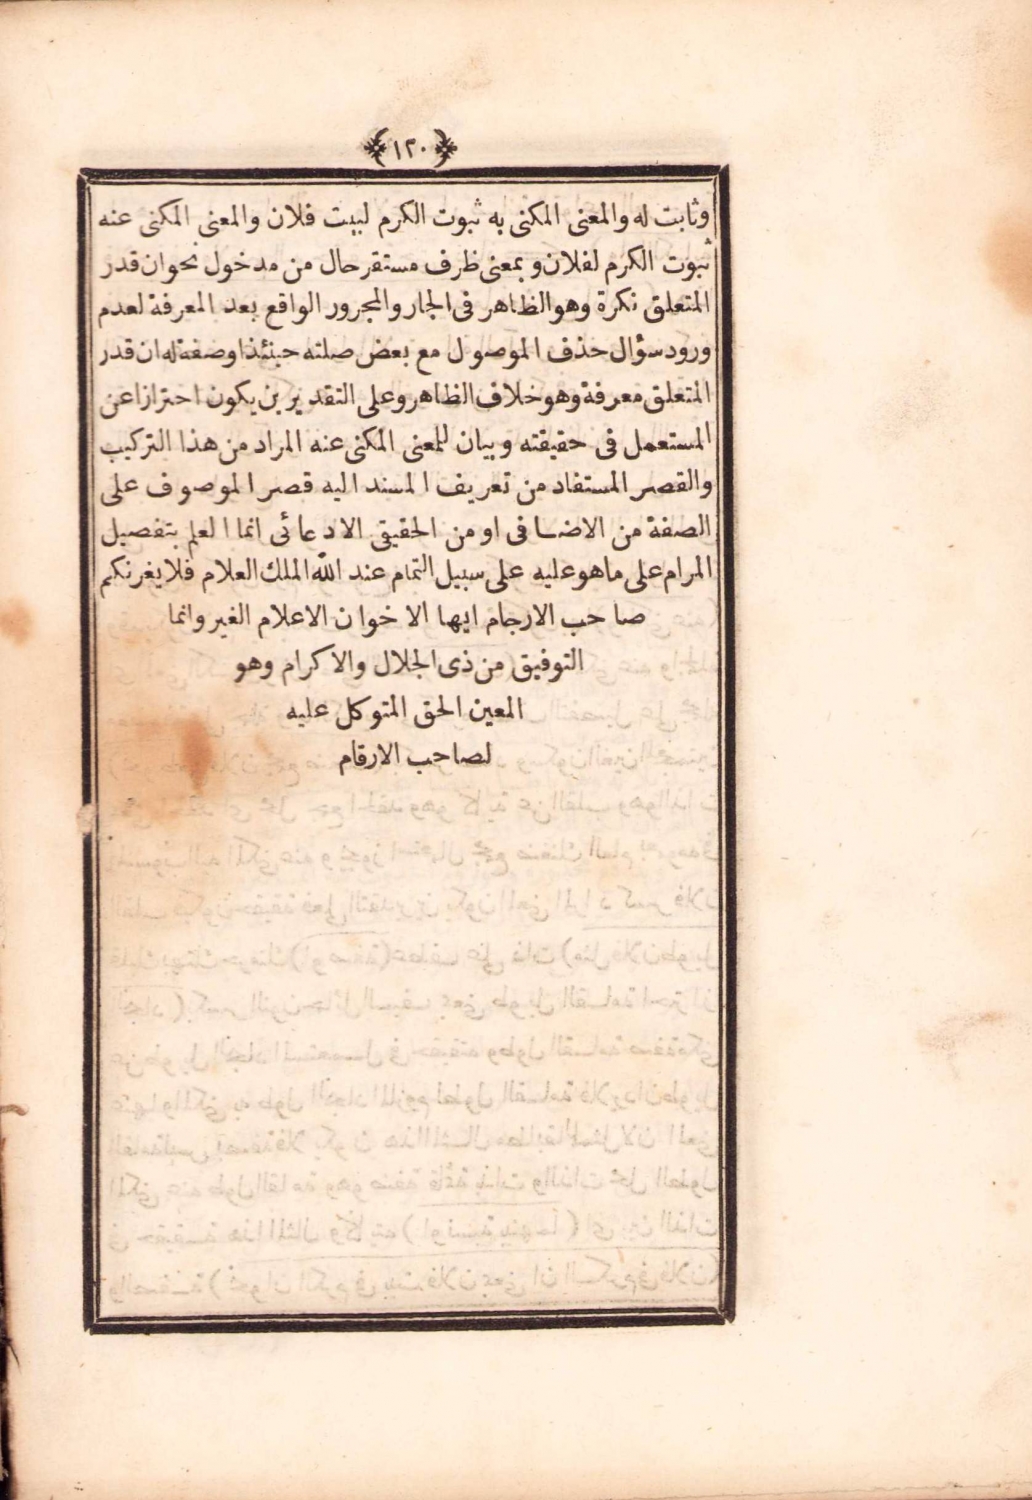 ﴿١٢٠﴾
وثابت له والمعنى المكنى به ثبوت الكرم لبيت فلان والمعنى المكنى عنه
ثبوت الكرم لفلان وبمعنى ظرف مستقر حال من مدخول نحو ان قدر
المتعلق نكرة وهو الظاهر فى الجار والمجرور الواقع بعد المعرفة لعدم
ورود سؤال حذف الموصول مع بعض صلته حينئذ او صفة له ان قدر
المتعلق معرفة وهو خلاف الظاهر وعلى التقديرين يكون احترازا عن
المستعمل فى حقيقته وبيان للمعنى المكنى عنه المراد من هذا التركيب
والقصر المستفاد من تعريف المسند اليه قصر الموصوف على
الصفة من الاضافى او من الحقيقى الادعائى انما العلم بتفصيل
المرام على ماهو عليه على سبيل التمام عند الله الملك العلام فلا يغرنكم
صاحب الارجام ايها الاخوان الاعلام الغير وانما
التوفيق من ذى الجلال والاكرام وهو
المعين الحق المتوكل عليه
لصاحب الارقام